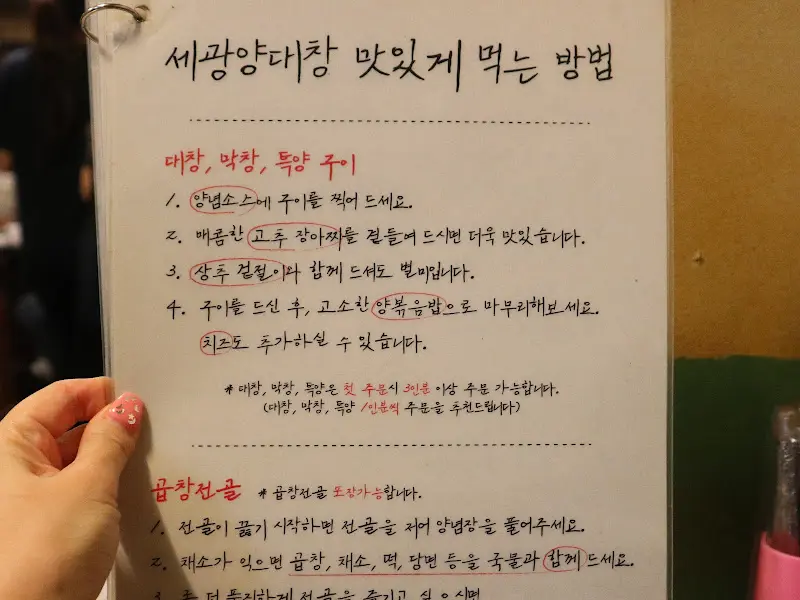 세광양대창 맛있게 먹는 방법
대창, 막창, 특양 구이
1. 양념소스에 구이를 찍어 드세요.
2. 매콤한 고추 장아찌를 곁들여 드시면 더욱 맛있습니다.
3. 상추 겉절이와 함께 드셔도 별미입니다.
4. 구이를 드신 후, 고소한 양볶음밥으로 마무리해보세요.
치즈도 추가하실 수 있습니다.
# 대창, 막창, 특양은 첫 주문시 3인분 이상 주문 가능합니다.
(대창, 막창, 특양 1인분씩 주문을 추천드립니다)
곱창전골 # 곱창전골 포장가능합니다.
1. 전골이 끓기 시작하면 전골을 저어 양념장을 풀어주세요.
2. 채소가 익으면 곱창, 채소, 떡, 당면 등을 국물과 함께 드세요.
3. 좀 더 푸짐하게 전골을 즐기고 싶으시면